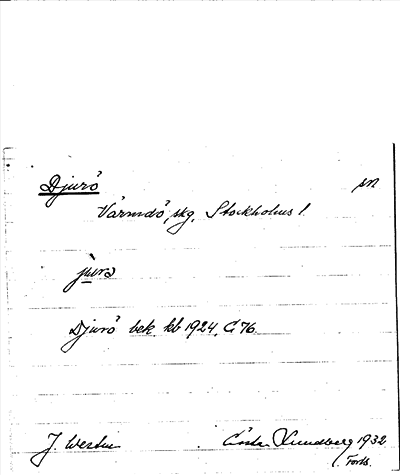 Djurö sn
Värmdö skg. Stockholms l.
jurə
Djurö bek kb 1924, C 76.
J Westin Gösta Lundberg 1932
Forts.